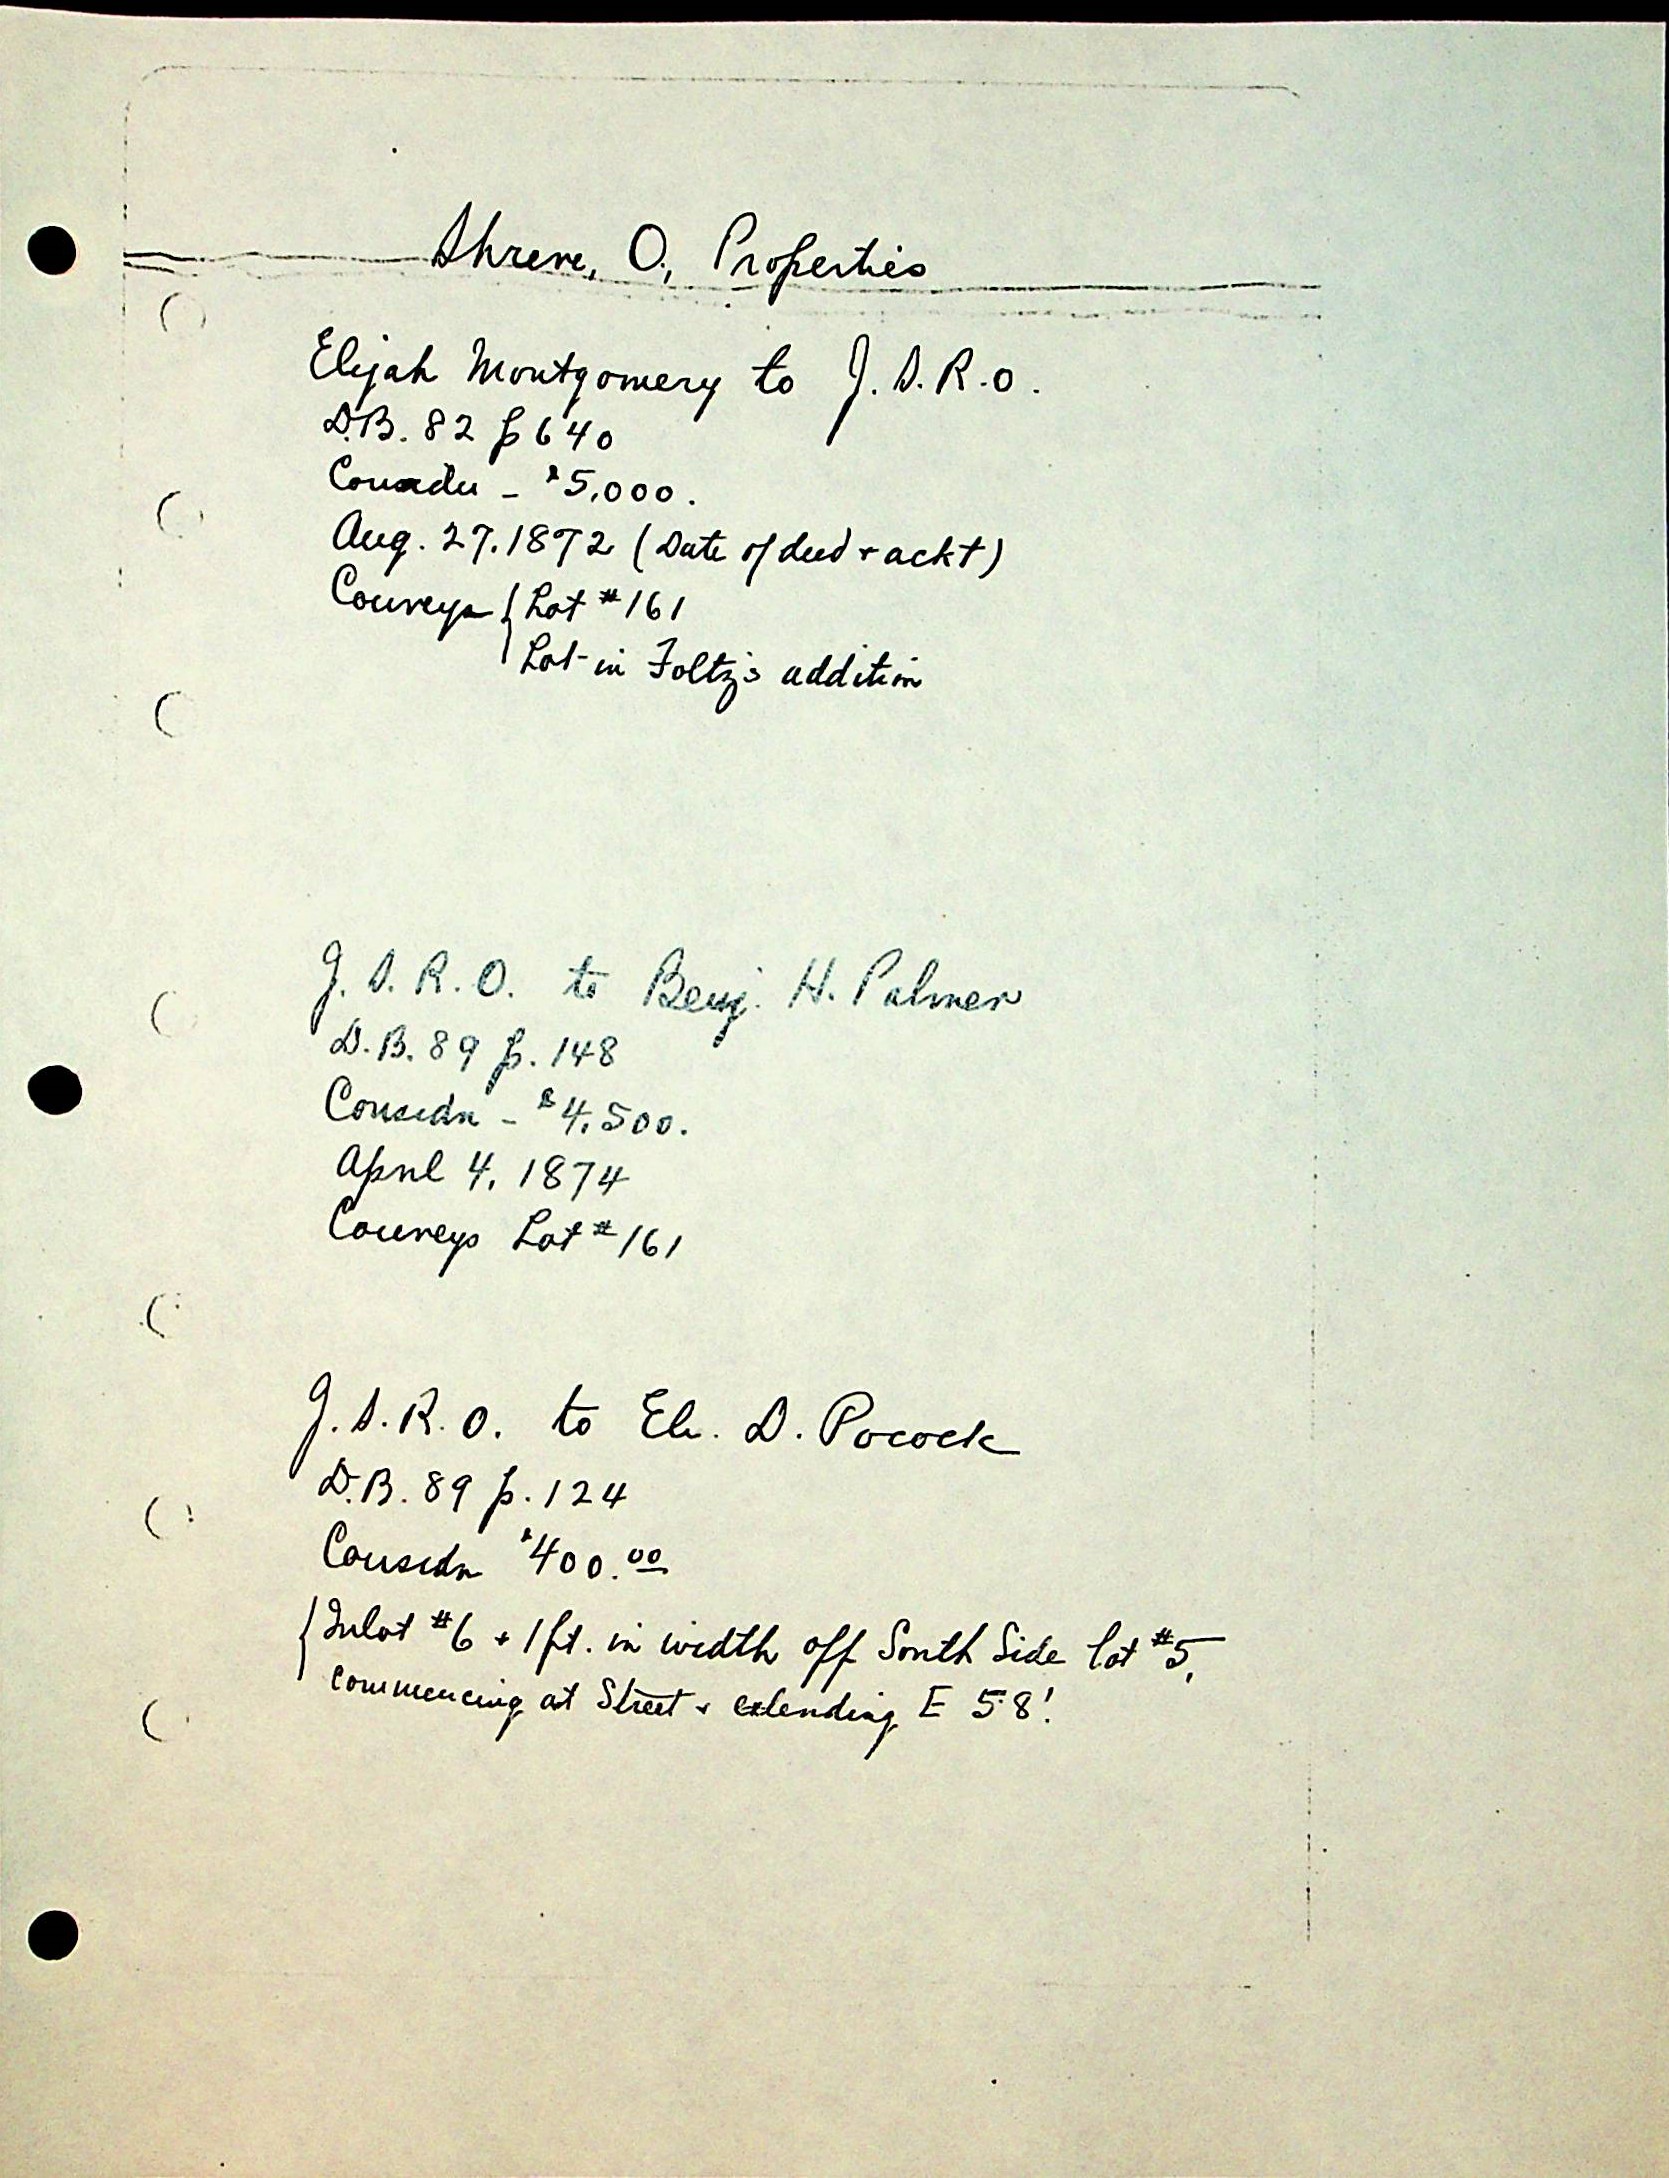 Shreve, O., Properties
Elijah Montgomery to J.S.R.O.
D.B. 82 p 640
Considn - $5,000.
Aug. 27, 1872 (Date of deed + ackt)
Conveys { Lot #161
Lot in Foltz's addition
J.S.R.O. to Benj. H. Palmer
D.B. 89 p. 148
Considn - $4,500.
April 4, 1874
Conveys Lot #161
J.S.R.O. to Eli. D. Pocock
D.B. 89 p. 124
Considn $400.00
{ Inlot #6 + 1 ft. in width off South Side lot #5,
commencing at Street + extending E 58'.